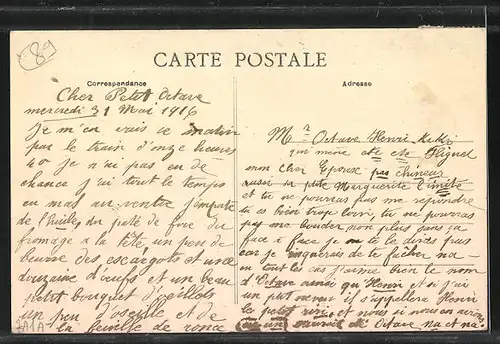 89
CARTE POSTALE
Correspondance
Adresse
Cher Petit Octave
mercredi 31 Mai 1916
Je m'en vais ce matin
par le train d'onze heures
40 je n'ai pas eu de
chance j'ai tout le temps
eu mal au ventre j'emporte
de l'huile, du pâté de foie du
fromage a la tête un peu de
beurre des escargots et une
douzaine d'œufs et un beau
petit bouquet d'œillets
un peu d'oseille et de
la feuille de ronce
Mr Octave Henri
qui mene
mon cher Epoux pas
aussi sa pate Marguerite
et tu ne pourras pas me repondre
tu es bien trop loin, tu ne pourras
pas me bouder non plus sans ça
face à face je ne te le dirais pas
car je risquerais de te fâcher na
en tout les cas j'aime bien le nom
d'Octave ainsi qu'Henri et si j'ai
un petit neveu il s'appellera Henri
le petit et nous si nous en avons
un de Octave na et na